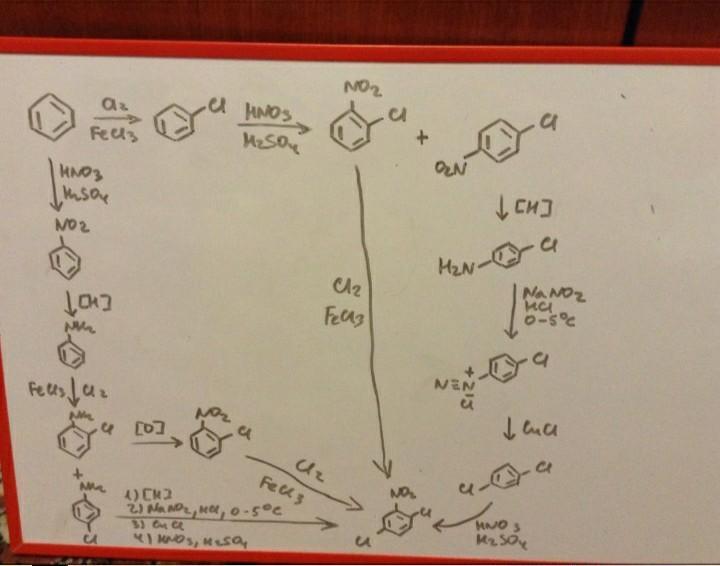 Cl2
FeCl3
Cl
HNO3
H2SO4
NO2
Cl
+
O2N
Cl
HNO3
H2SO4
NO2
[H]
NH2
FeCl3 Cl2
NH2
Cl
[O]
NO2
Cl
+
NH2
Cl
1) [H]
2) NaNO2, HCl, 0-5°C
3) CuCl
4) HNO3, H2SO4
Cl2
FeCl3
Cl2
FeCl3
[H]
H2N
Cl
NaNO2
HCl
0-5°C
N≡N
+
Cl
-
Cl
CuCl
Cl
Cl
HNO3
H2SO4
NO2
Cl
Cl